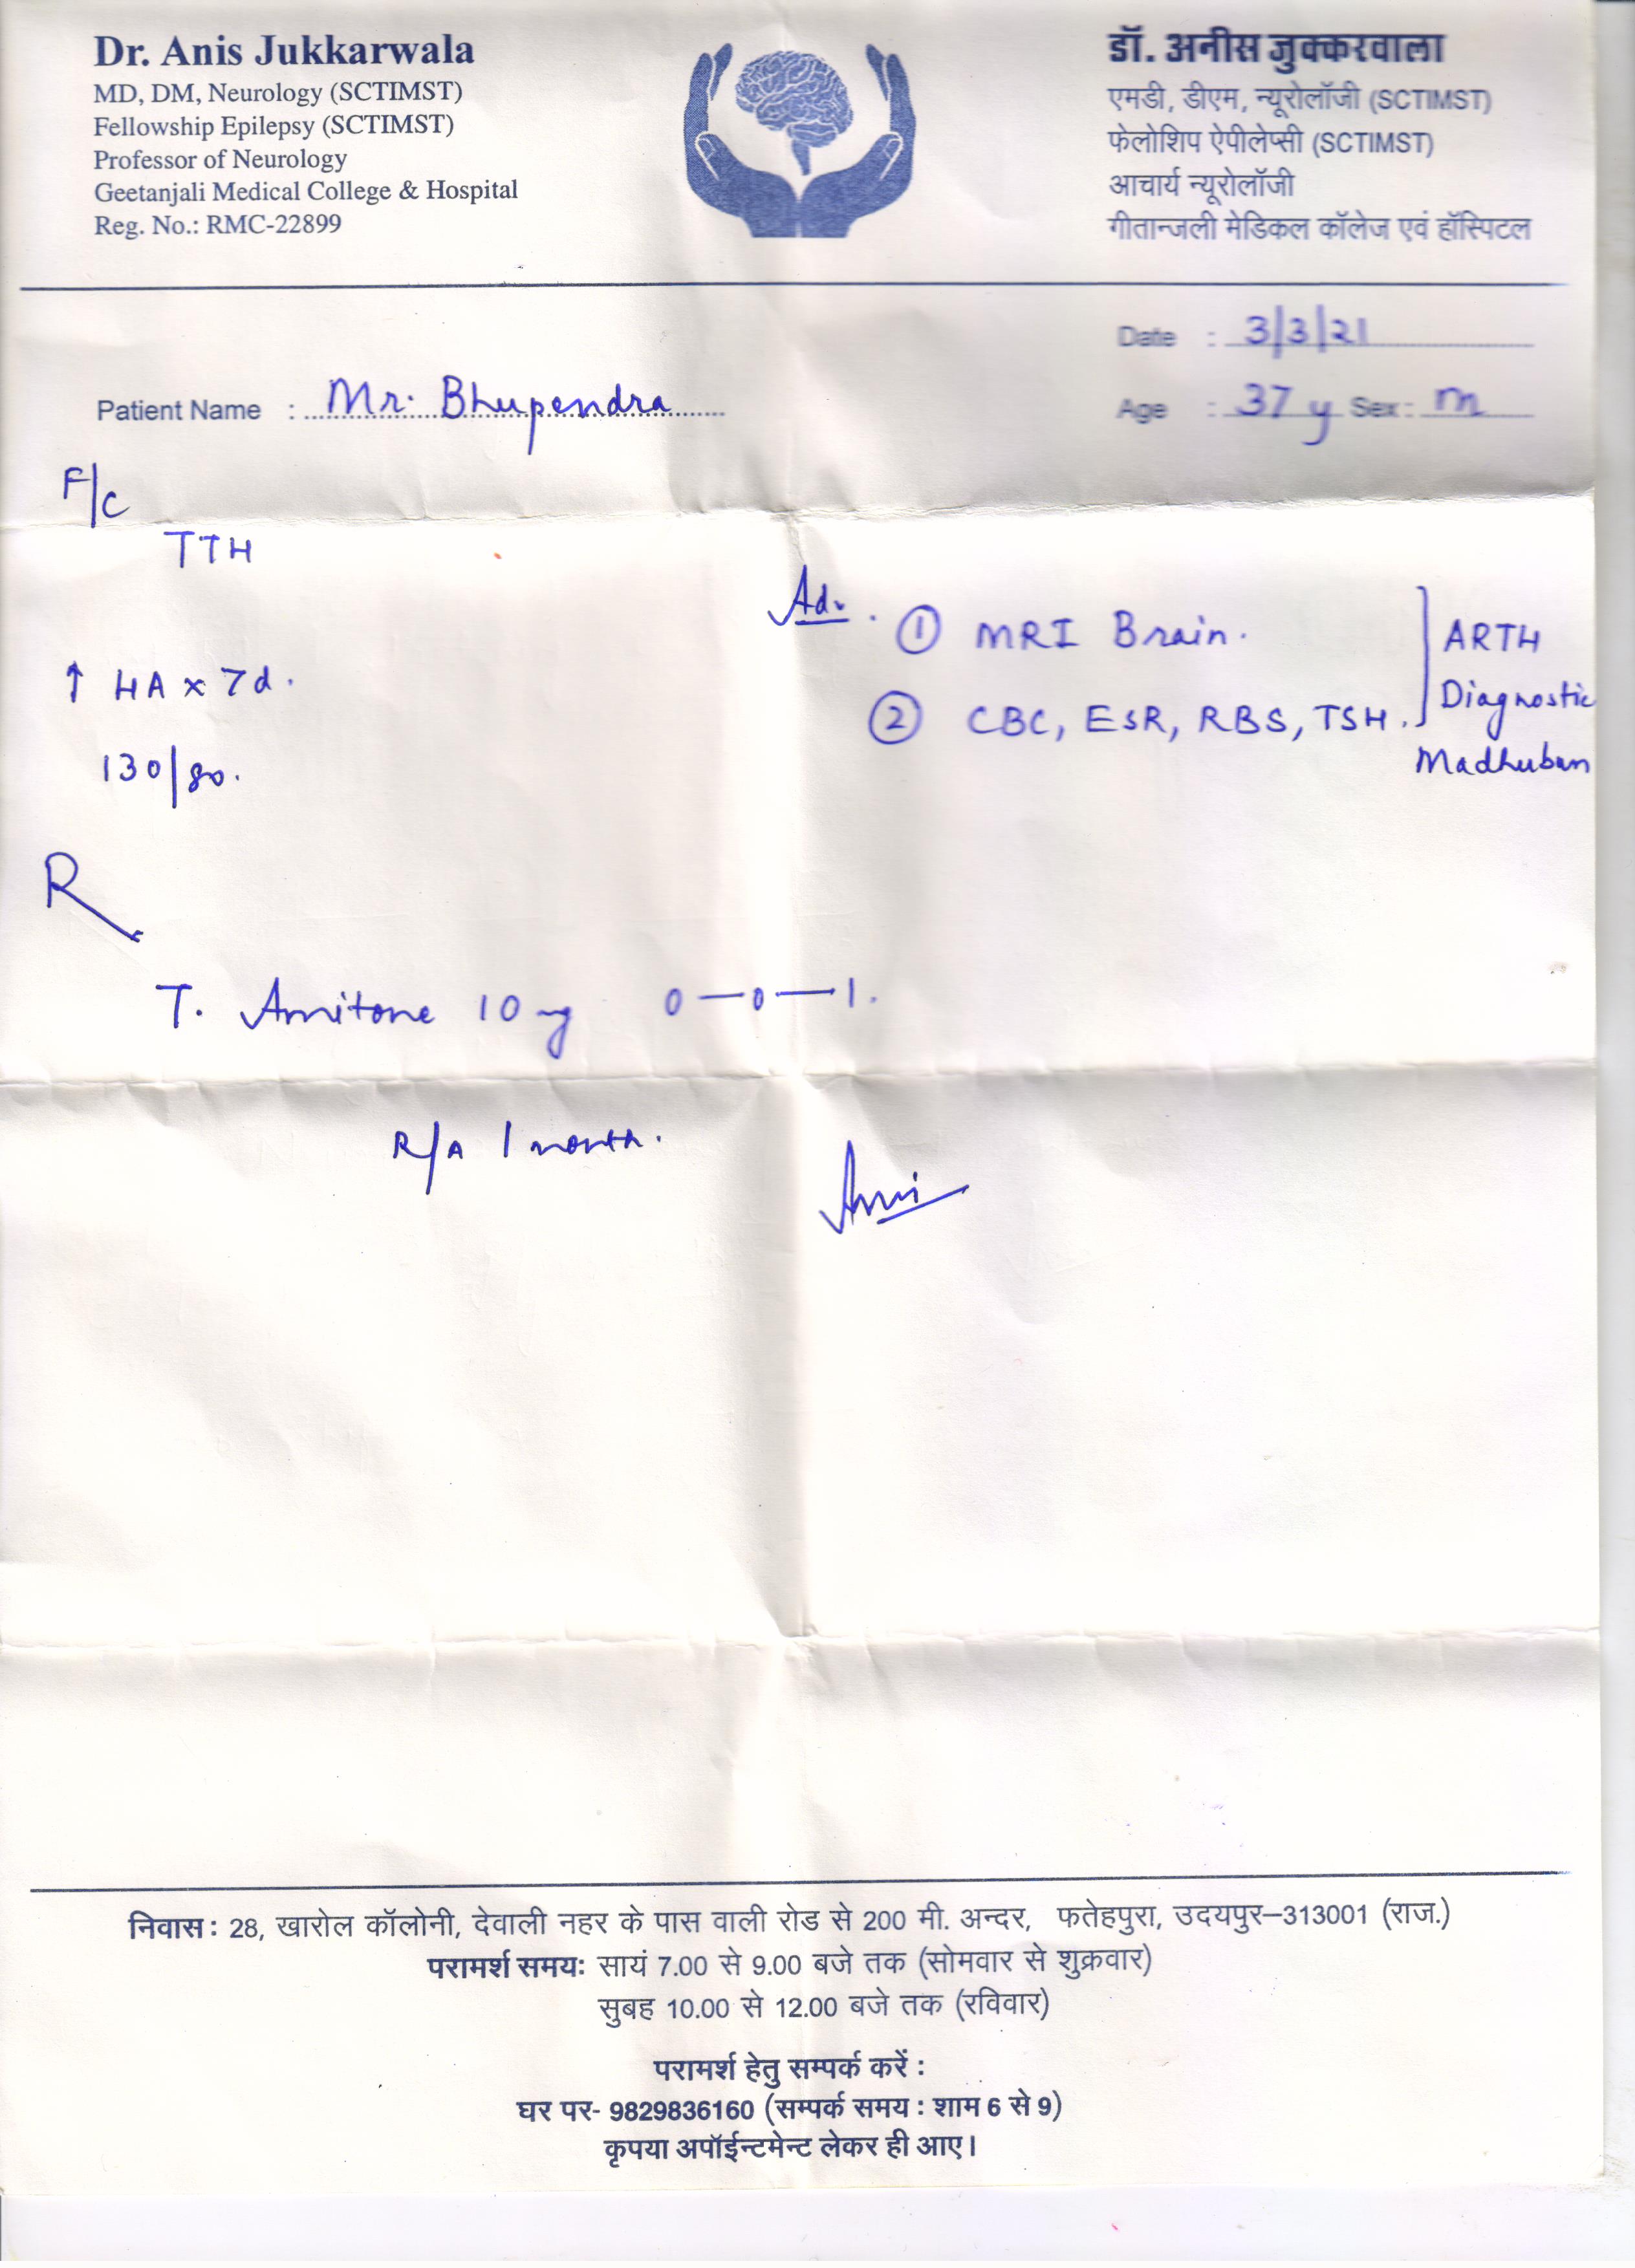 Dr. Anis Jukkarwala
MD, DM, Neurology (SCTIMST)
Fellowship Epilepsy (SCTIMST)
Professor of Neurology
Geetanjali Medical College & Hospital
Reg. No.: RMC-22899
डॉ. अनीस जुक्करवाला
एमडी, डीएम, न्यूरोलॉजी (SCTIMST)
फेलोशिप ऐपीलेप्सी (SCTIMST)
आचार्य न्यूरोलॉजी
गीतान्जली मेडिकल कॉलेज एवं हॉस्पिटल
Date : 3/3/21
Patient Name : Mr. Bhupendra
Age : 37 y Sex : m
F/C
TTH
↑ HA x 7d.
130/80.
Adv. ① MRI Brain.
② CBC, ESR, RBS, TSH.
ARTH
Diagnostic
Madhuban
R
T. Amitone 10 mg 0—0—1.
R/A 1 month.
Anis
निवास : 28, खारोल कॉलोनी, देवाली नहर के पास वाली रोड से 200 मी. अन्दर, फतेहपुरा, उदयपुर–313001 (राज.)
परामर्श समयः सायं 7.00 से 9.00 बजे तक (सोमवार से शुक्रवार)
सुबह 10.00 से 12.00 बजे तक (रविवार)
परामर्श हेतु सम्पर्क करें :
घर पर- 9829836160 (सम्पर्क समय : शाम 6 से 9)
कृपया अपॉईन्टमेन्ट लेकर ही आए।